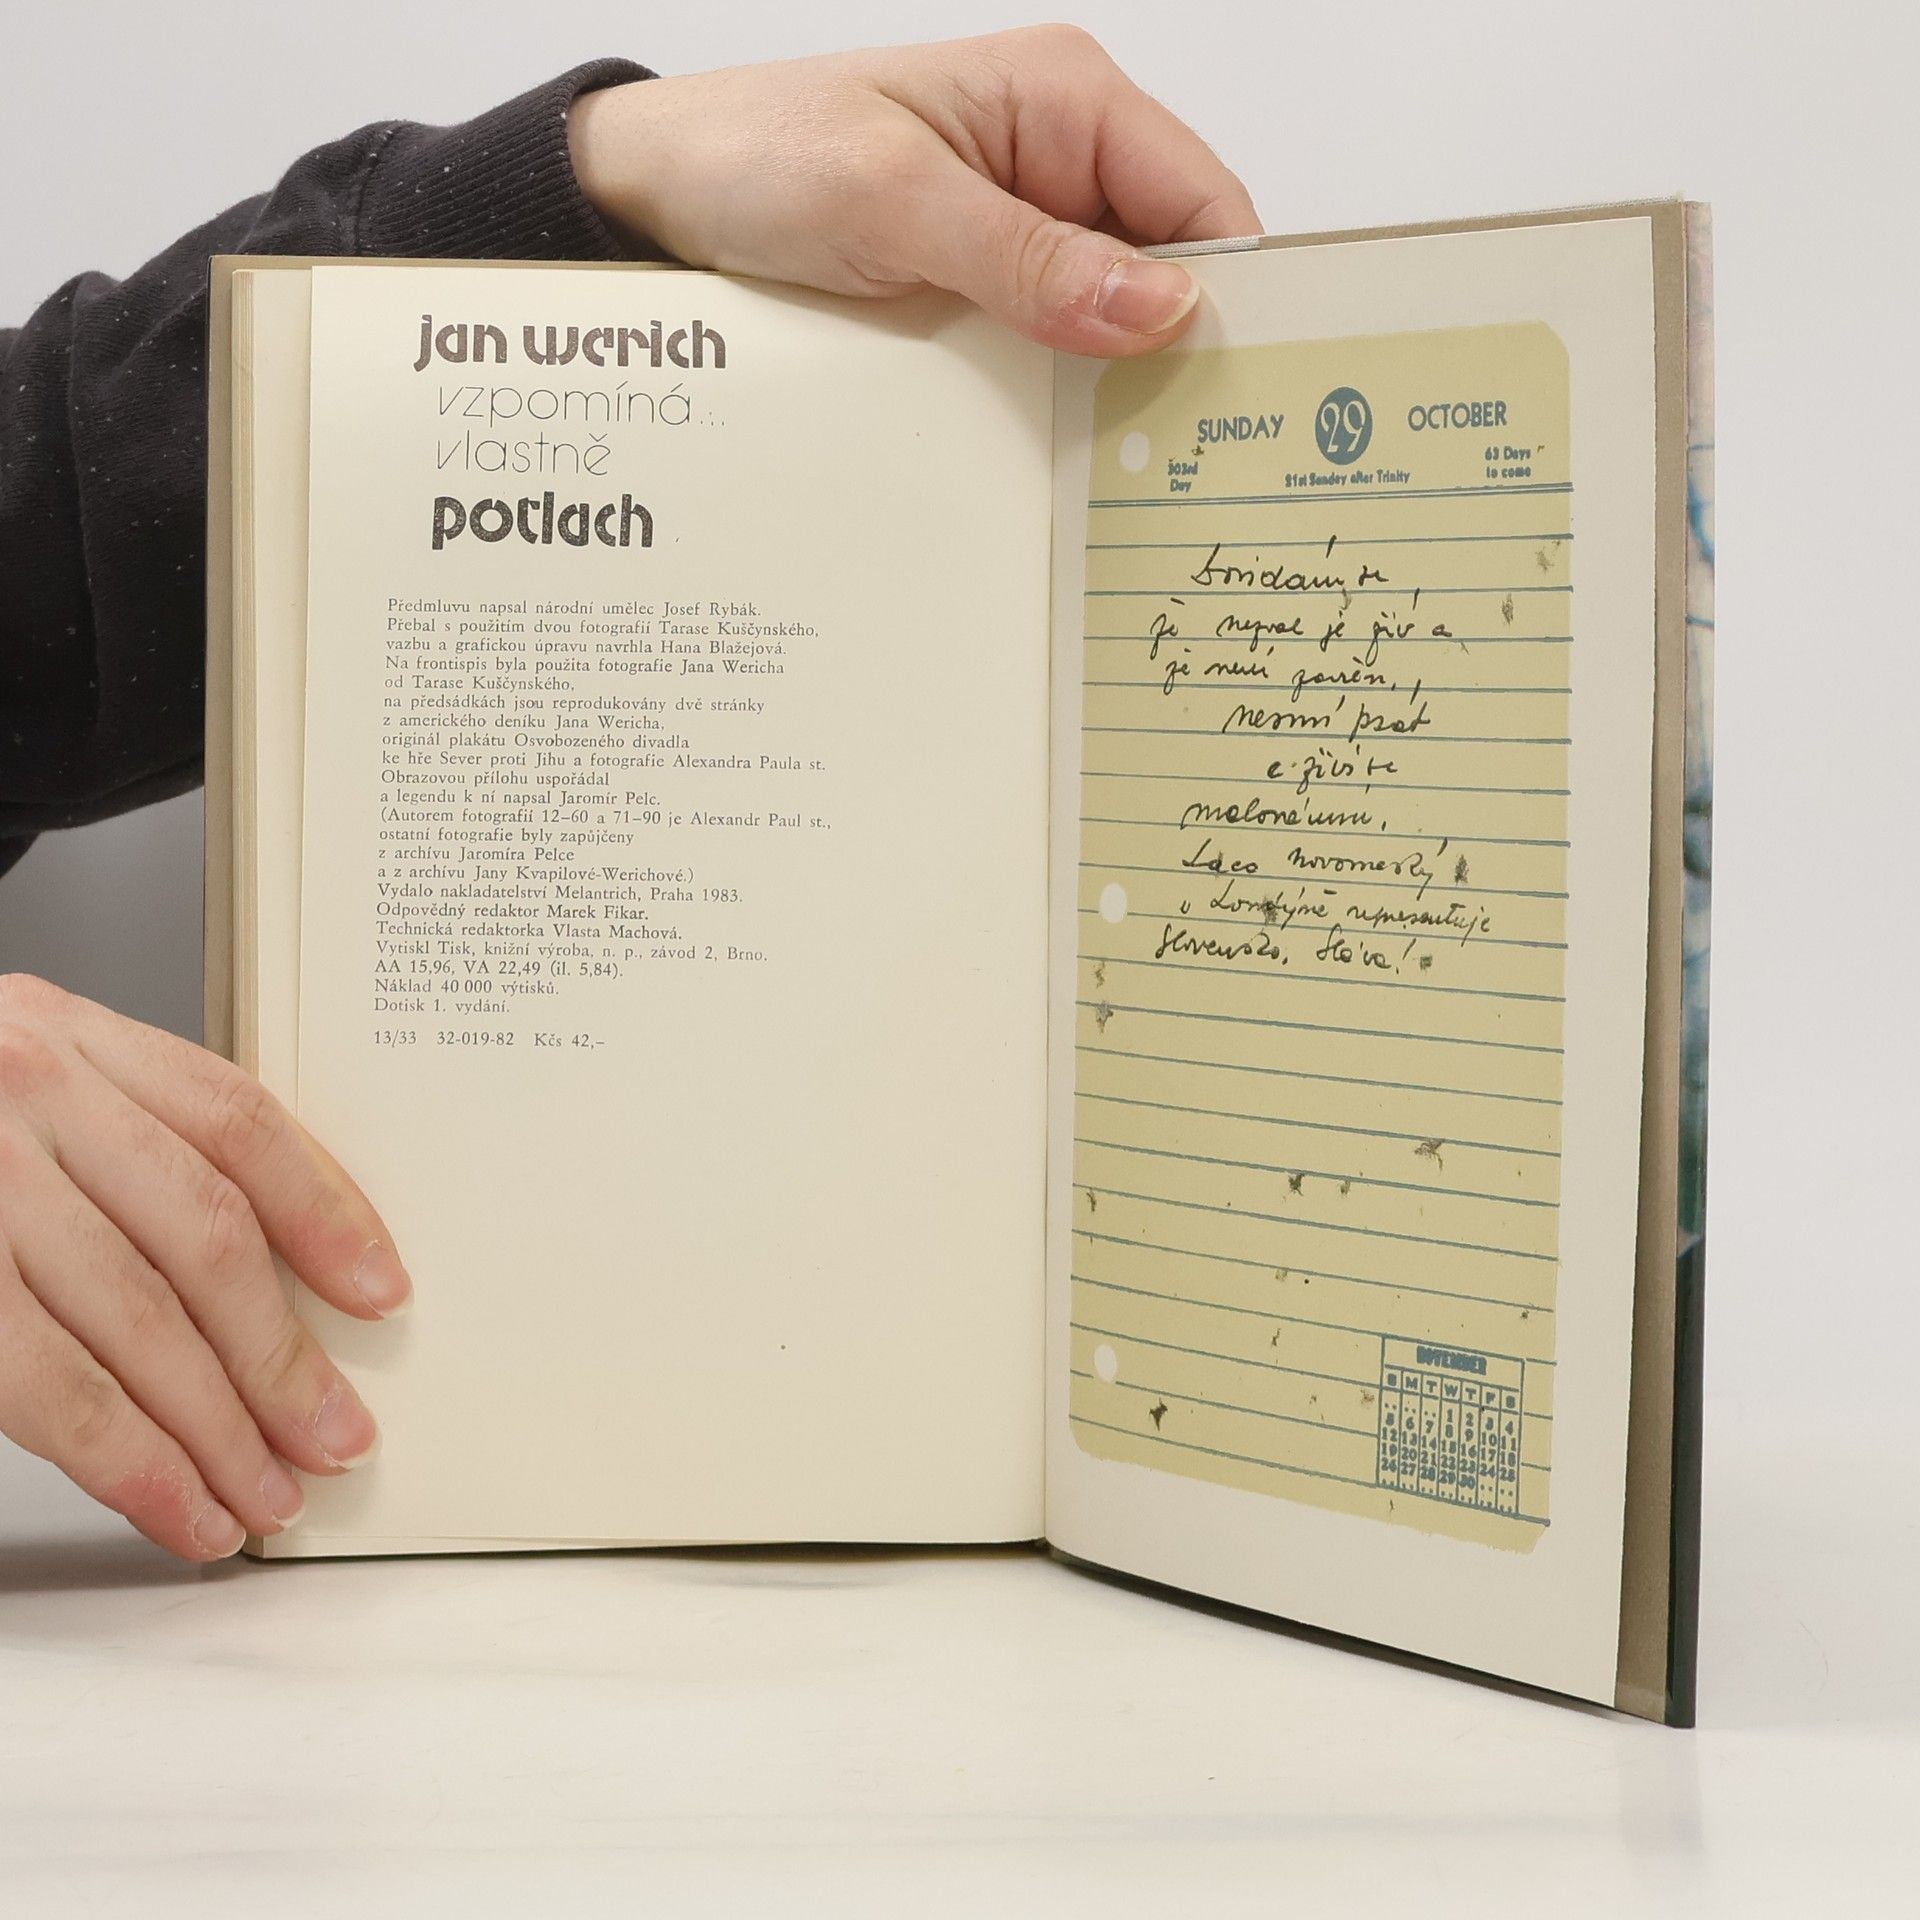 jan werich
vzpomíná...
vlastně
potlach
Předmluvu napsal národní umělec Josef Rybák.
Přebal s použitím dvou fotografií Tarase Kuščynského,
vazbu a grafickou úpravu navrhla Hana Blažejová.
Na frontispis byla použita fotografie Jana Wericha
od Tarase Kuščynského,
na předsádkách jsou reprodukovány dvě stránky
z amerického deníku Jana Wericha,
originál plakátu Osvobozeného divadla
ke hře Sever proti Jihu a fotografie Alexandra Paula st.
Obrazovou přílohu uspořádal
a legendu k ní napsal Jaromír Pelc.
(Autorem fotografií 12–60 a 71–90 je Alexandr Paul st.,
ostatní fotografie byly zapůjčeny
z archívu Jaromíra Pelce
a z archívu Jany Kvapilové-Werichové.)
Vydalo nakladatelství Melantrich, Praha 1983.
Odpovědný redaktor Marek Fikar.
Technická redaktorka Vlasta Machová.
Vytiskl Tisk, knižní výroba, n. p., závod 2, Brno.
AA 15,96, VA 22,49 (il. 5,84).
Náklad 40 000 výtisků.
Dotisk 1. vydání.
13/33 32-019-82 Kčs 42,–
SUNDAY 29 OCTOBER
303rd Day
21st Sunday after Trinity
63 Days to come
Dovídám se,
že nezval je živ a
že není zavřen,
nesmí psát
a živí se
malováním.
Laco Novomeský
v Londýně representuje
Slovensko. Sláva!
NOVEMBER
S M T W T F S
.. .. .. 1 2 3 4
5 6 7 8 9 10 11
12 13 14 15 16 17 18
19 20 21 22 23 24 25
26 27 28 29 30 .. ..